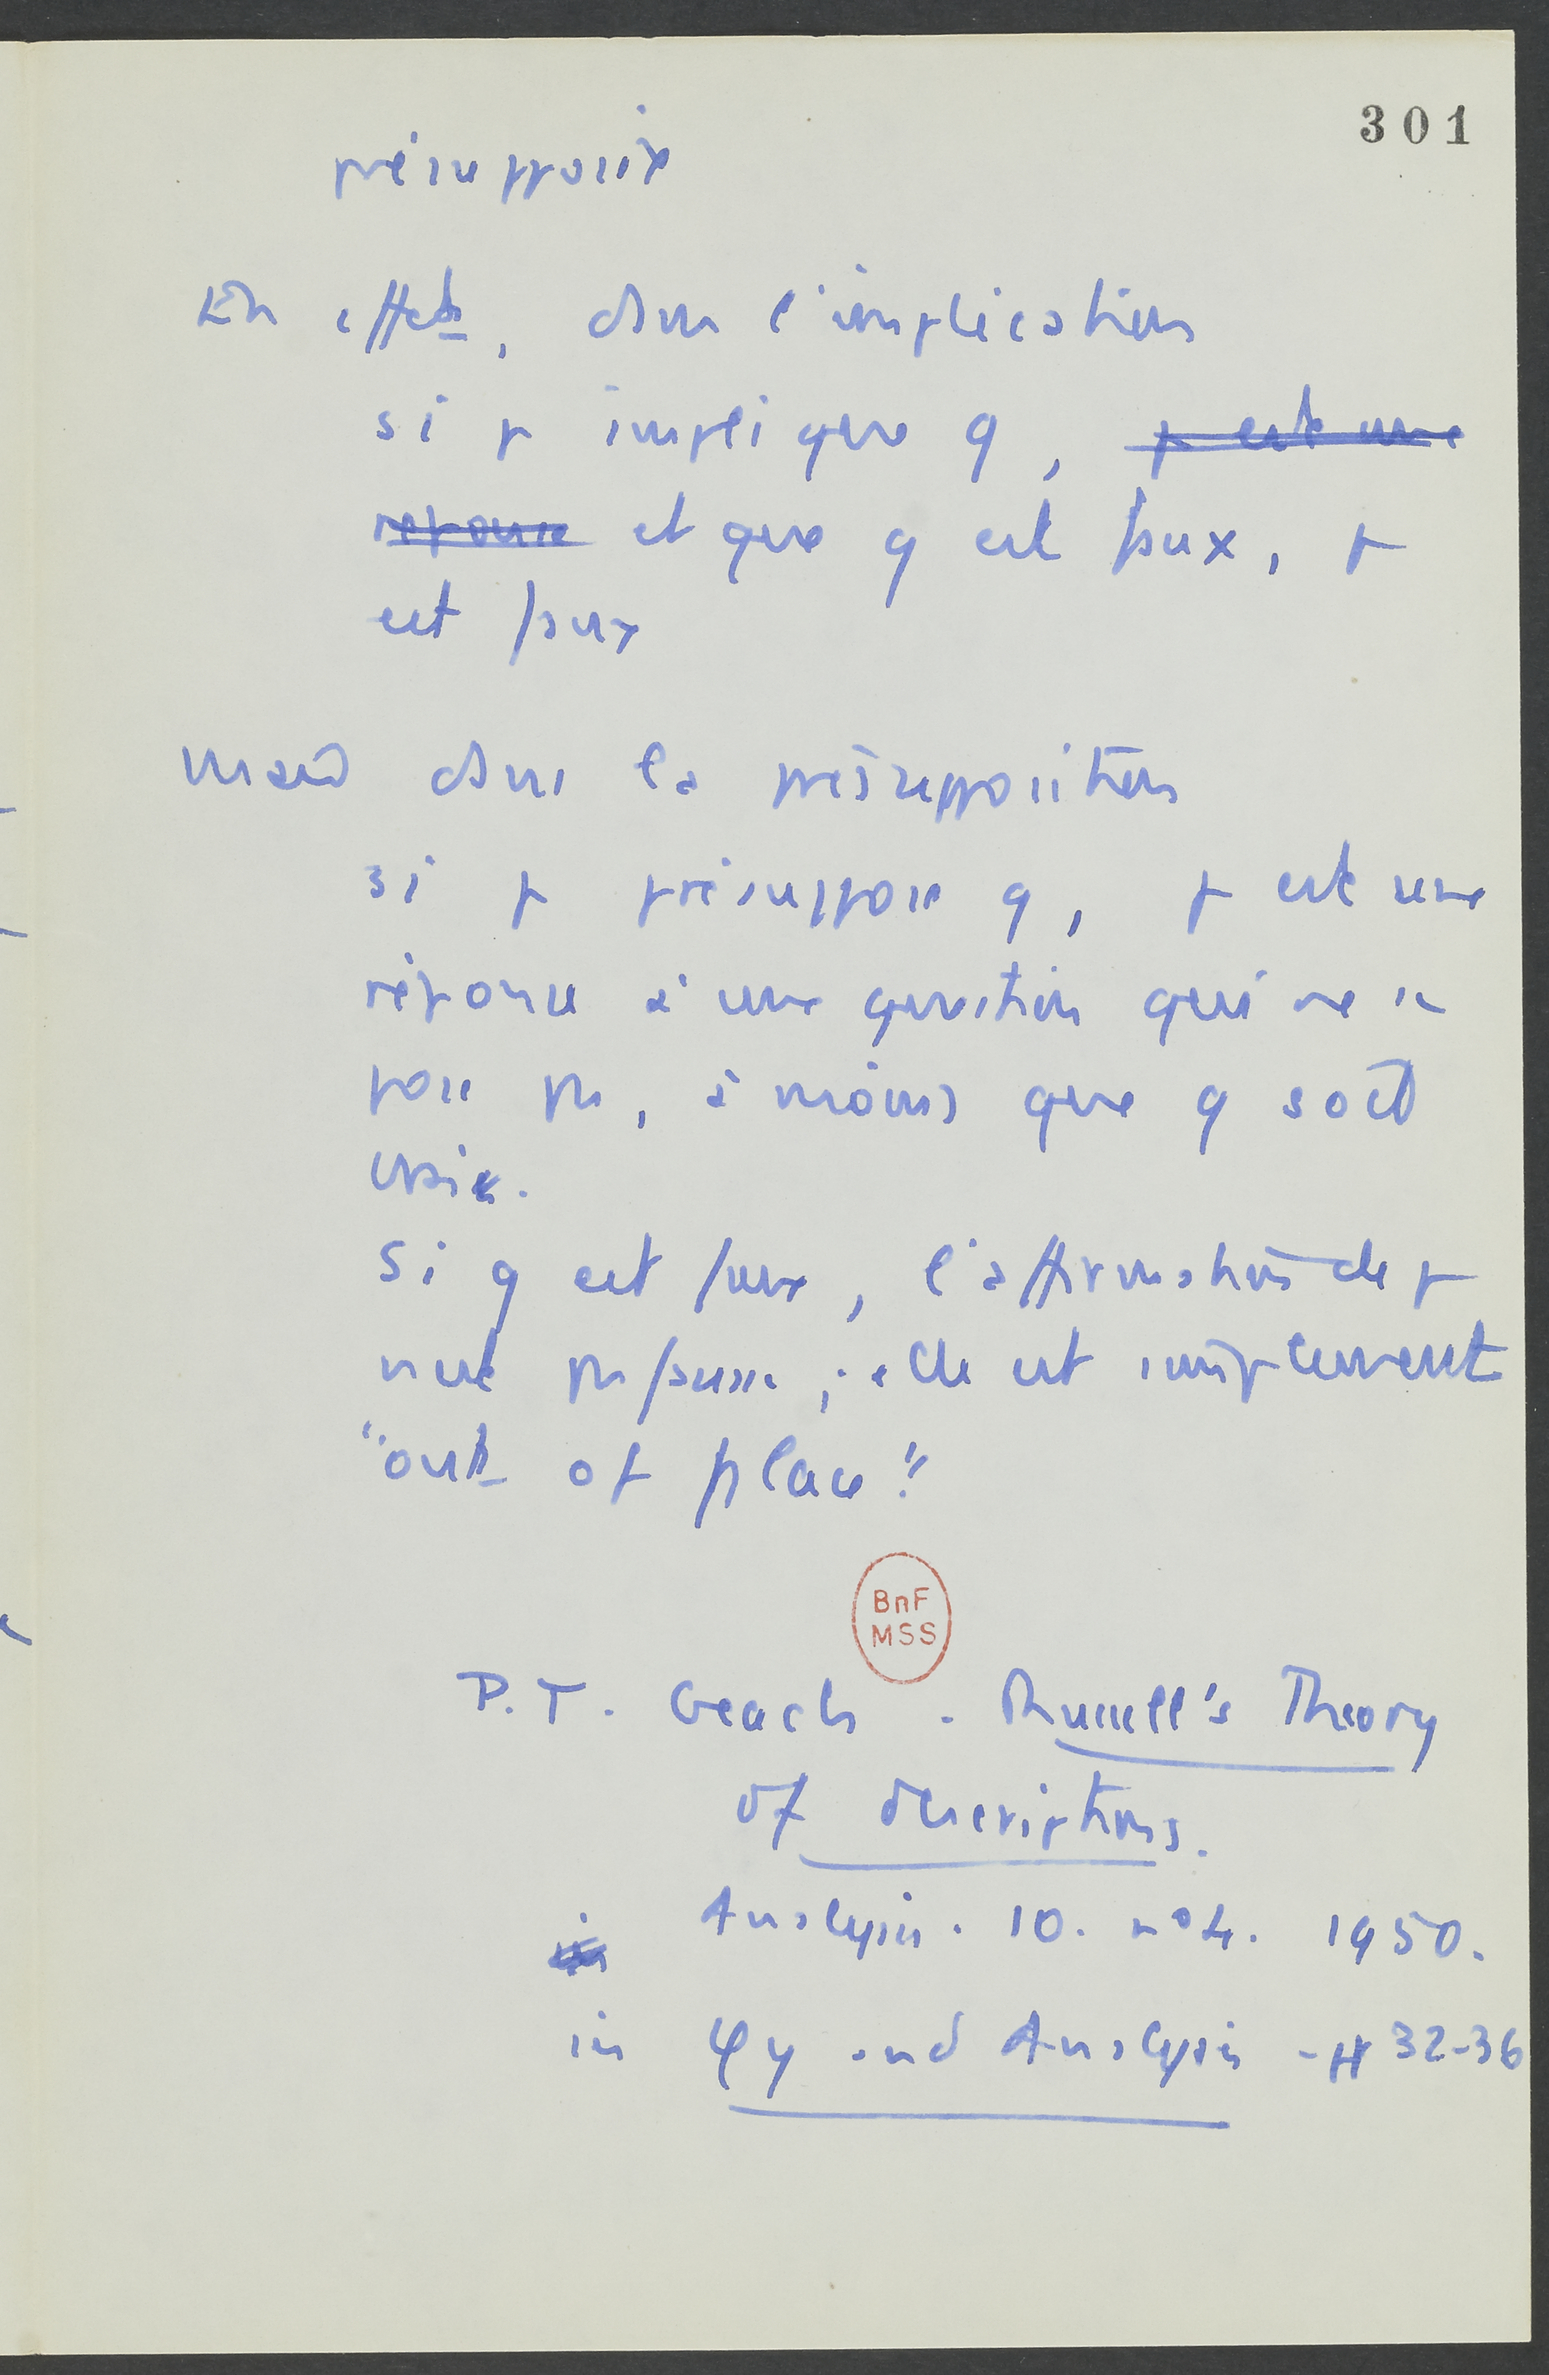 301
présupposée
En effet, dans l'implication
si p implique q, p est une
réponse et que q est faux, p
est faux
Mais dans la présupposition
si p présuppose q, p est une
réponse à une question qui ne se
pose pas, à moins que q soit
vraie.
Si q est faux, l'affirmation de p
n'est pas fausse ; elle est simplement
"out of place".
BnF
MSS
P.T. Geach. Russell's Theory
of descriptions.
Analysis. 10. n°4. 1950.
in
in φy and Analysis - pp 32-36